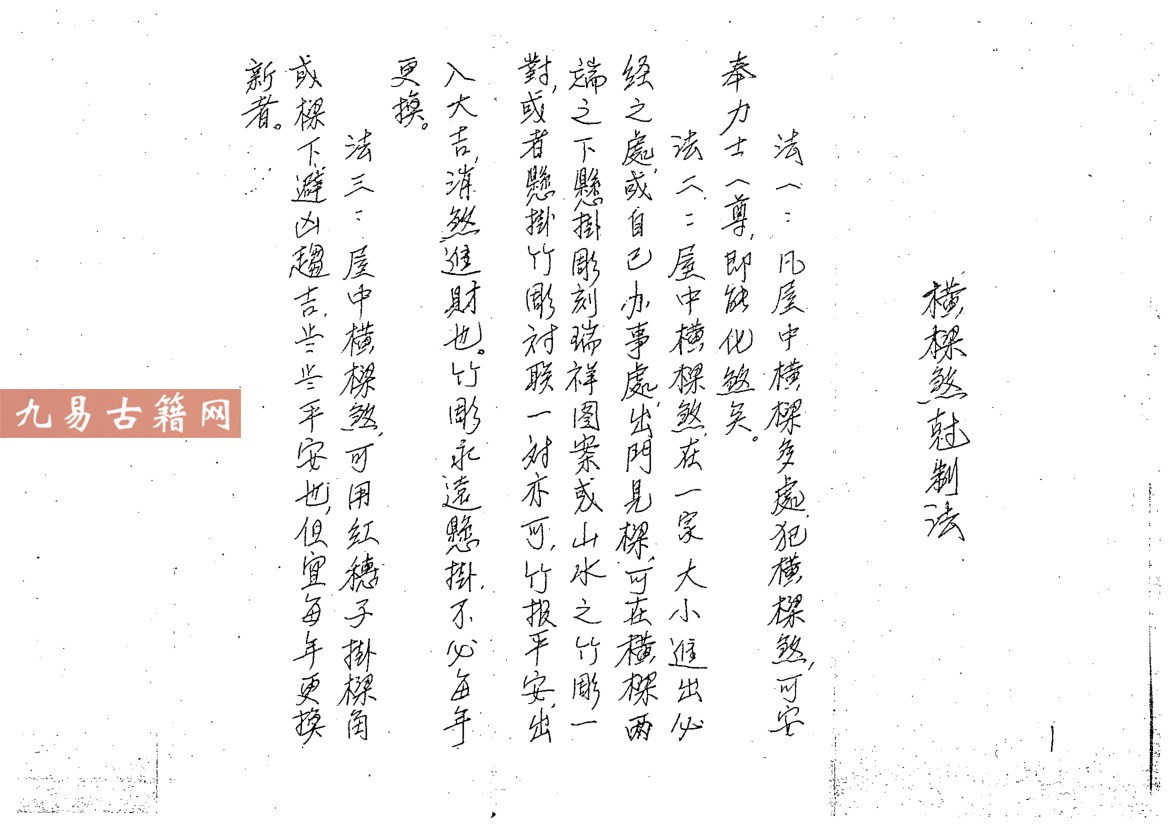 橫樑煞尅制法
法一：凡屋中橫樑多處，犯橫樑煞，可安
奉力士一尊，即能化煞矣。
法二：屋中橫樑煞，在一家大小進出必
经之處，或自己办事處，出門見樑，可在橫樑兩
端之下懸掛彫刻瑞祥图案或山水之竹彫一
對，或者懸掛竹彫对联一对亦可，竹报平安，出
入大吉，消煞進財也。竹彫永遠懸掛，不必每年
更換。
法三：屋中橫樑煞，可用紅穗子掛樑角
或樑下避凶趨吉，歩歩平安也，但宜每年更換
新者。
1
九易古籍网